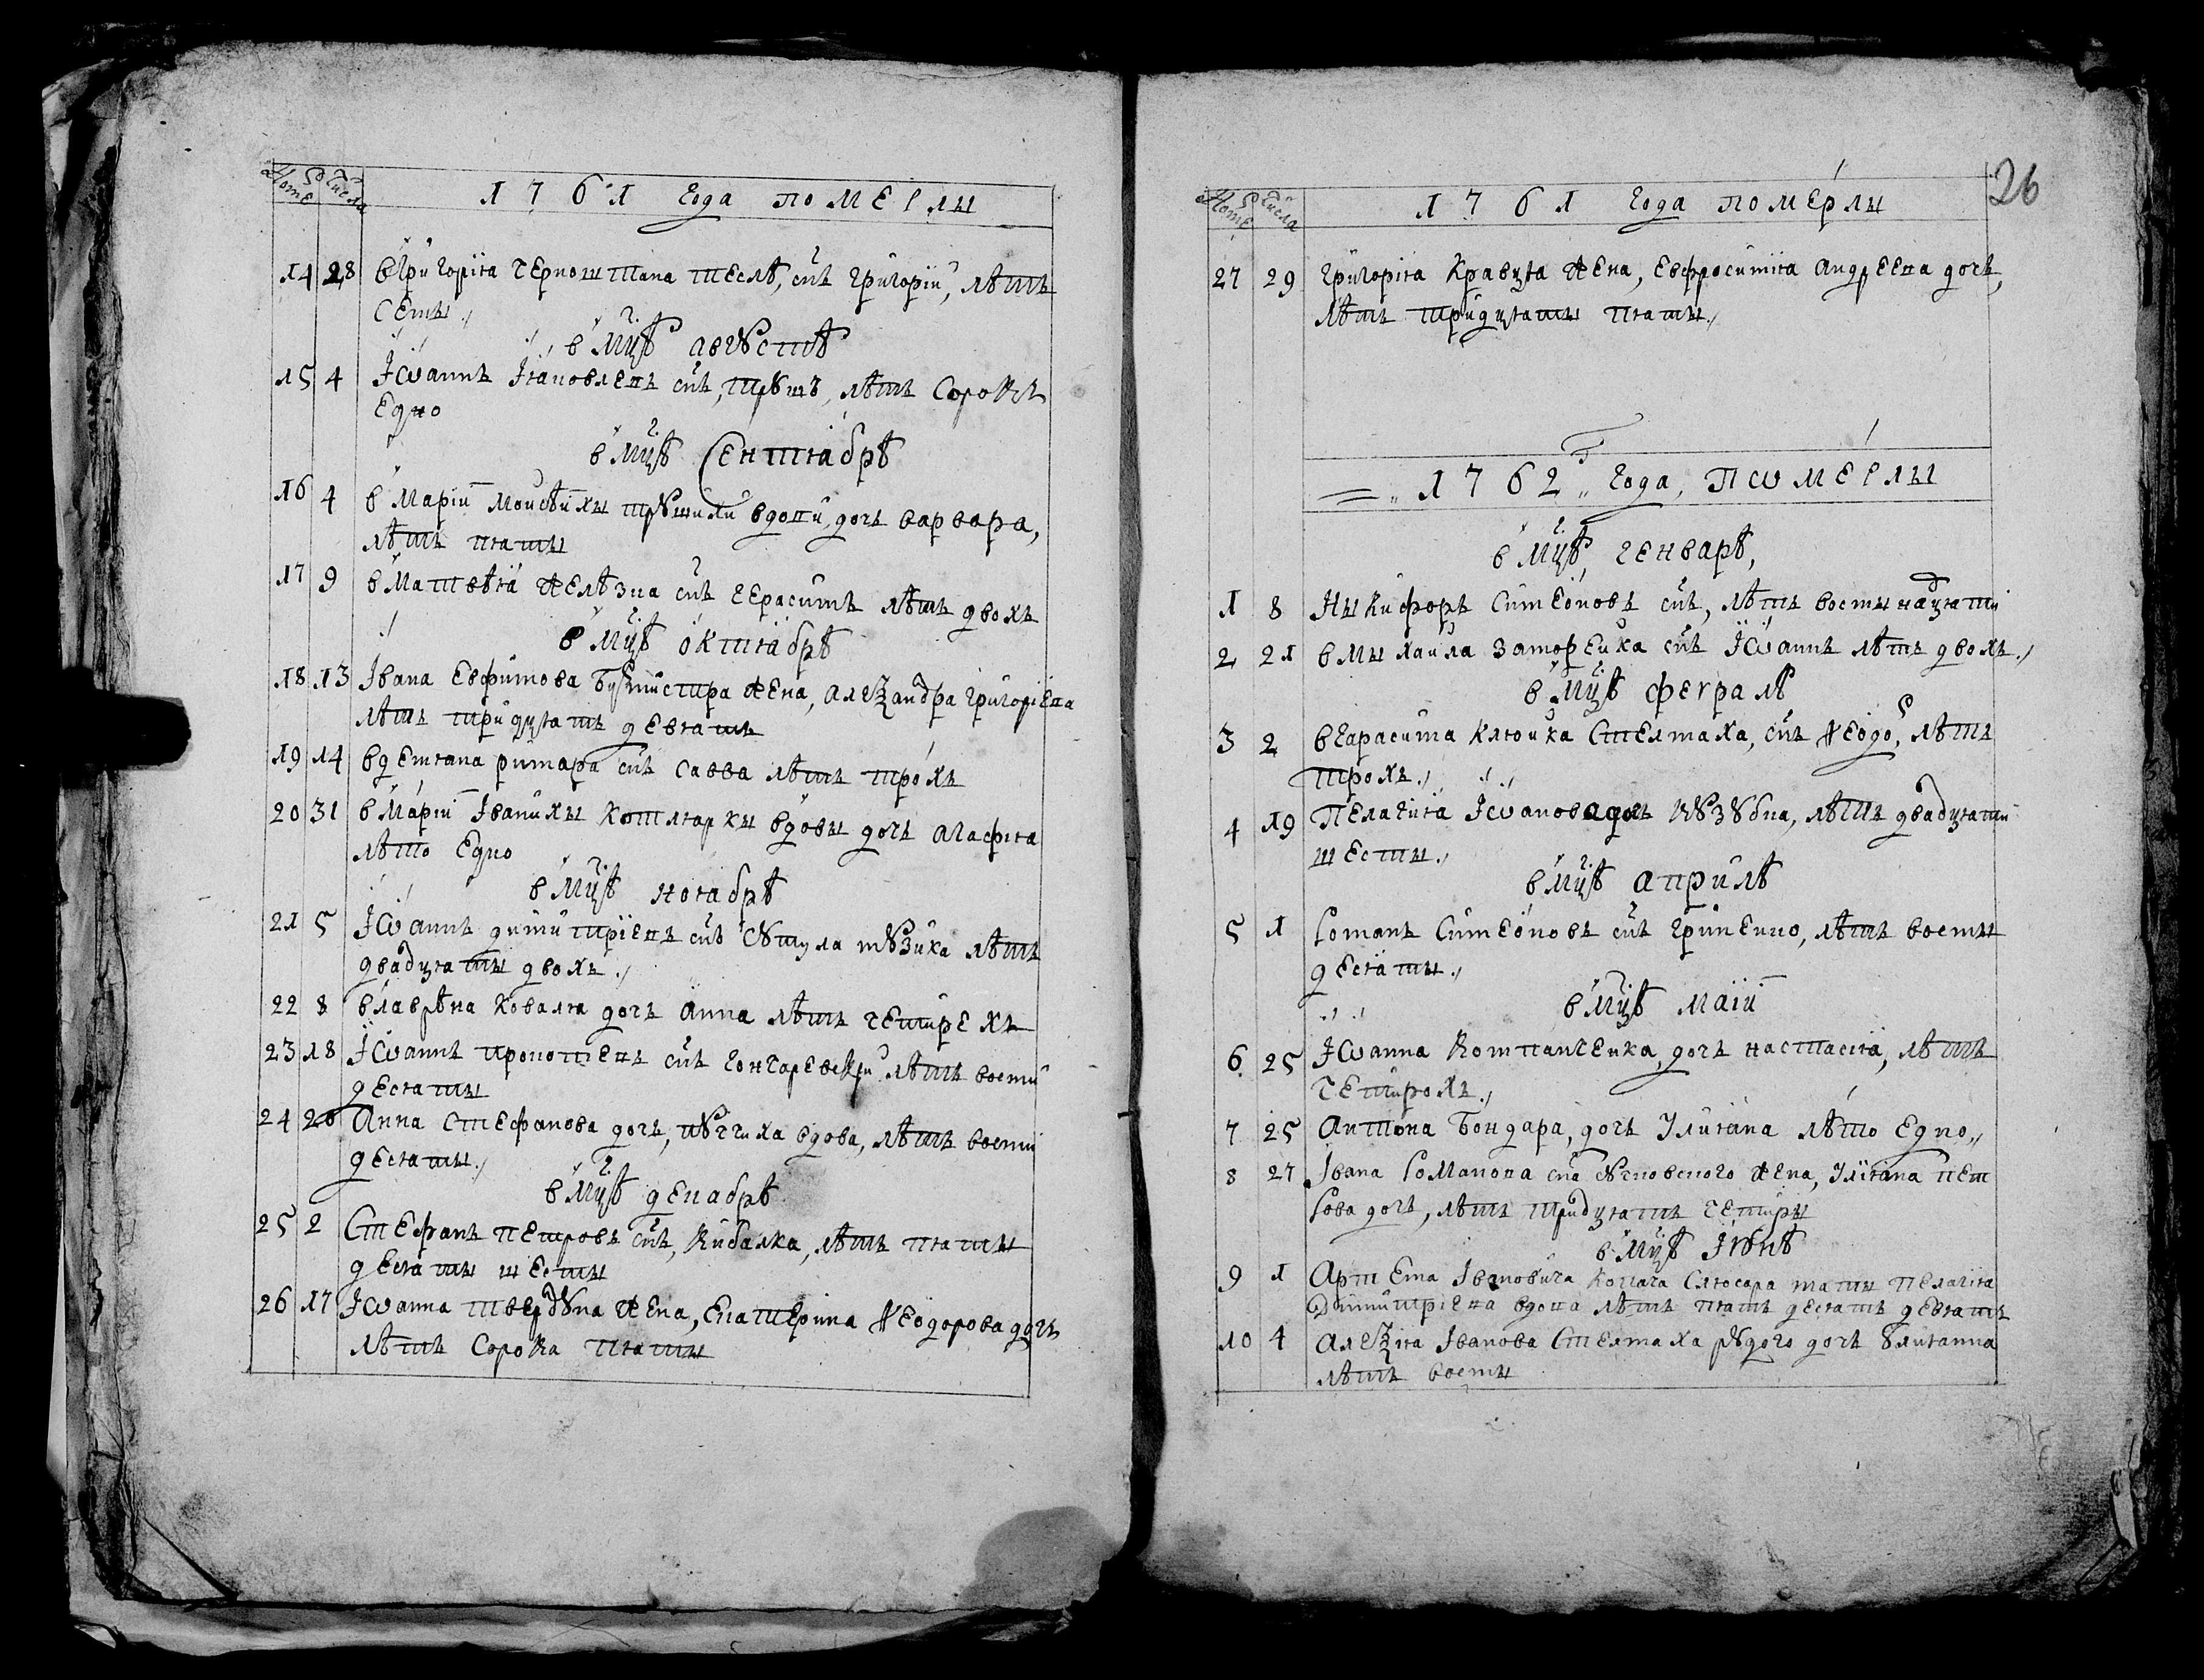 Номе Числа 1761 года померлы
14 28 в Григорія Черноштана теслѣ, снъ Григорій, лѣтъ
семы
в мцѣ августѣ
15 4 Іѡаннъ Іяковлевъ снъ, лѣтъ сорокъ
едно
в мцѣ Сентябрѣ
16 4 в Маріи Моисѣихы вдовы, дочь Варвара,
лѣтъ пяты
17 9 в Матвѣя Желѣзна снъ Герасимъ лѣтъ двохъ
в мцѣ октябрѣ
18 13 Івана Евфимова жена, Алеѯандра Григоріева
лѣтъ тридцять девять
19 14 в Демяна римара снъ Савва лѣтъ трохъ
20 31 в Маріи Іванихы котляркы вдовы дочь Агафія
лѣто едно
в мцѣ ноябрѣ
21 5 Іѡаннъ Димитріевъ снъ музика лѣтъ
двадцяты двохъ
22 8 в Лаврѣна коваля дочь Анна лѣтъ четирехъ
23 18 Іѡаннъ снъ Гончаревскій лѣтъ восми
десяты
24 20 Анна Стефанова дочь, вдова, лѣтъ восми
десяты
в мцѣ декабрѣ
25 2 Стефанъ Петровъ снъ, Рибалка, лѣтъ пяты
десяты шесты
26 17 Іѡанна Твердуна жена, Екатерина Ѳеодорова дочь
лѣтъ сорока пяты
26
Номе Числа 1761 года померлы
27 29 Григорія Кравця жена, Евфросимія Андреева дочь,
лѣтъ тридцяты пяты
1762 года, Пѡмерлы
в мцѣ, генварѣ,
1 8 Ныкифоръ Симеоновъ снъ, лѣтъ восмынадцяти
2 21 в Мыхаила снъ Іѡаннъ лѣтъ двохъ
в мцѣ февралѣ
3 2 в Гарасима Стелмаха, снъ Ѳеодо, лѣтъ
трохъ
4 19 Пелагия Іѡанова дочь, лѣтъ двадцяти
шесты
в мцѣ априлѣ
5 1 Романъ Симеоновъ снъ Гриненко, лѣтъ восмы
десяты
в мцѣ маіи
6 25 Іѡанна Компанченка, дочь Настасія, лѣтъ
четирохъ
7 25 Антона Бондара, дочь Улияна лѣто едно
8 27 Івана Романова сна жена, Улияна Пет
рова дочь, лѣтъ тридцять четиры
в мцѣ Іюнѣ
9 1 Артема Івановича слюсара маты Пелагія
Димитріева вдова лѣтъ пять десять девять
10 4 Алеѯія Іванова Стелмаха рудого дочь Улианна
лѣтъ восмы